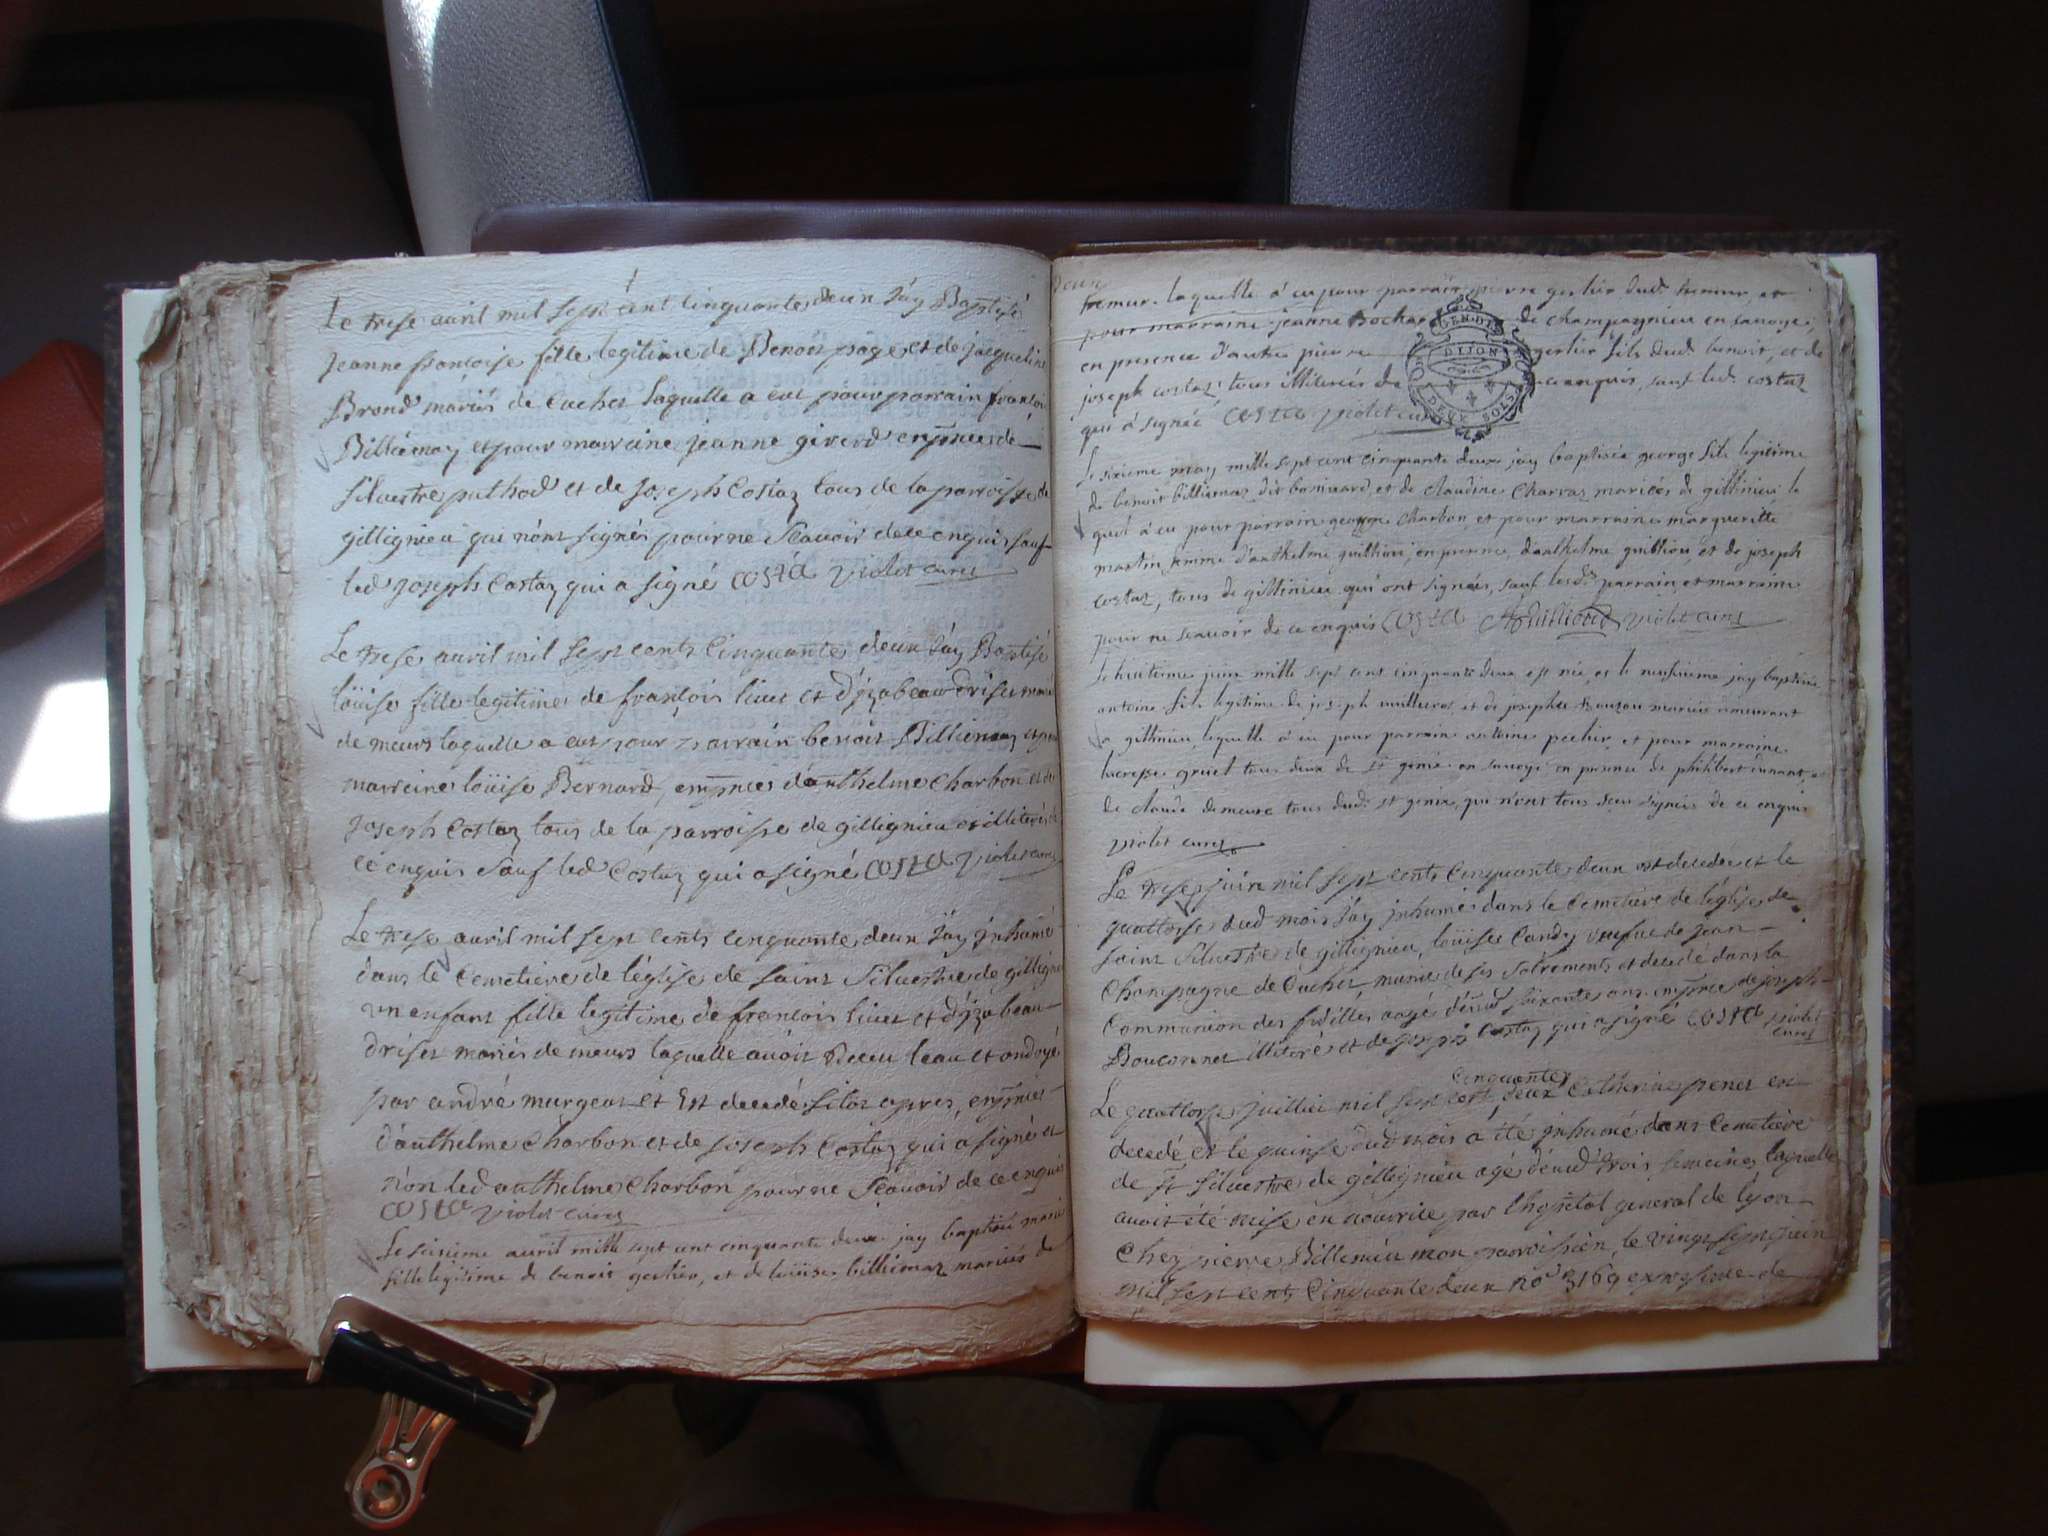 Le trese auril mil sept cent Cinquante deux J'ay Baptisé
jeanne françoise fille legitime de Benois page et de jacqueline
Brond mariés de Cuchet Laquelle a eut pour parrain françois
Billiemaz et pour marreine jeanne giverd en pnce de
silvestre puthod et de Joseph Costaz tous de la parroisse de
gillignieu qui n'ont signés pour ne Scavoir de ce enquis sauf
led Joseph Costaz qui a signé COSTA Violet curez
Le trese auril mil sept cents Cinquante deux J'ay Baptisé
loüise fille legitime de françois liuet et d'yzabeau driset mariés
de meurs laquelle a eut pour parrain benoit Billiemaz et pour
marreine loüise Bernard, en pnce d'anthelme Charbon et de
Joseph Costaz tous de la parroisse de gillignieu et illiterés
ce enquis Sauf led Costaz qui a signé COSTA Violet curez
Le trese auril mil sept cents cinquante deux J'ay jnhumé
dans le Cemetiere de l'église de saint Siluestre de gilligni
vn enfant fille legitime de francois liuet et d'yzabeau
driset mariés de meurs laquelle auoit Receu leau et ondoyé
par andré murgeat et Est decedé sitot apres, en pnce
d'anthelme Charbon et de Joseph Costaz qui a signé et
non led anthelme Charbon pour ne Scavoir de ce enquis
COSTA Violet curez
Le seizieme auril mille sept cent cinquante deux jay baptisé marie
fille legitime de benoit gerlier, et de loüise billiemaz mariés de
deux
laquelle à eu pour parrain pierre gerlier dud. et
pour marraine jeanne Bochar de champagnieu en sauoye,
en presence d'autre pierre gerlier fils dud. benoit, et de
joseph costaz tous illiterés de ce enquis, sauf led. costaz
qui à signé COSTA violet curez
GEN DE DIJON
DEUX SOLS
Le sixieme may mille sept cent cinquante deux jay baptisé george fils legitime
de benoit billiemaz dit bonnard et de claudine Charraz mariés de gillinieu le
quel à eu pour parrain george Charbon et pour marraine marguerite
martin femme d'anthelme guillion, en presence d'anthelme guillion, et de joseph
costaz, tous de gillinieu qui ont signés, sauf lesds parrain et marraine
pour ne scauoir de ce enquis COSTA violet curez
Le huitieme juin mille sept cent cinquante deux est née, et le neufuieme jay baptisé
antoine fils legitime de joseph et de josephte mariés
a gillinieu, lequelle à eu pour parrain antoine pechir, et pour marraine
lucresse gruel tous deux de st genis en sauoye en presence de philibert dunant, et
de claude demeure tous dud. st genix, qui n'ont tous sceu signés de ce enquis
violet curez
Le trese juin mil sept cents Cinquante deux est decedée et le
quattorse dud mois J'ay jnhumé dans le Cemetiere de l'église de
saint Siluestre de gillignieu, loüise Candy veufue de jean
Champagne de Cuchet, munie de ses Sacrements et decedé dans la
Communion des fidelles aagé d'enud soixante ans en pnce de joseph
Bouconnet illiteré et de joseph Costaz qui a signé COSTA violet
curez
Le quattorse juillet mil sept cent cinquante deux Catherine penet est
decedé et le quinse dud mois a été jnhumé dans Cemetiere
de St Siluestre de gillignieu agé d'enud trois semeines laquelle
auoit été mise en nourrice par l'hopital general de lyon
Chez pierre Billemiu mon paroissien, le vingt sept juin
mil sept cents Cinquante deux no 3169 en presence de